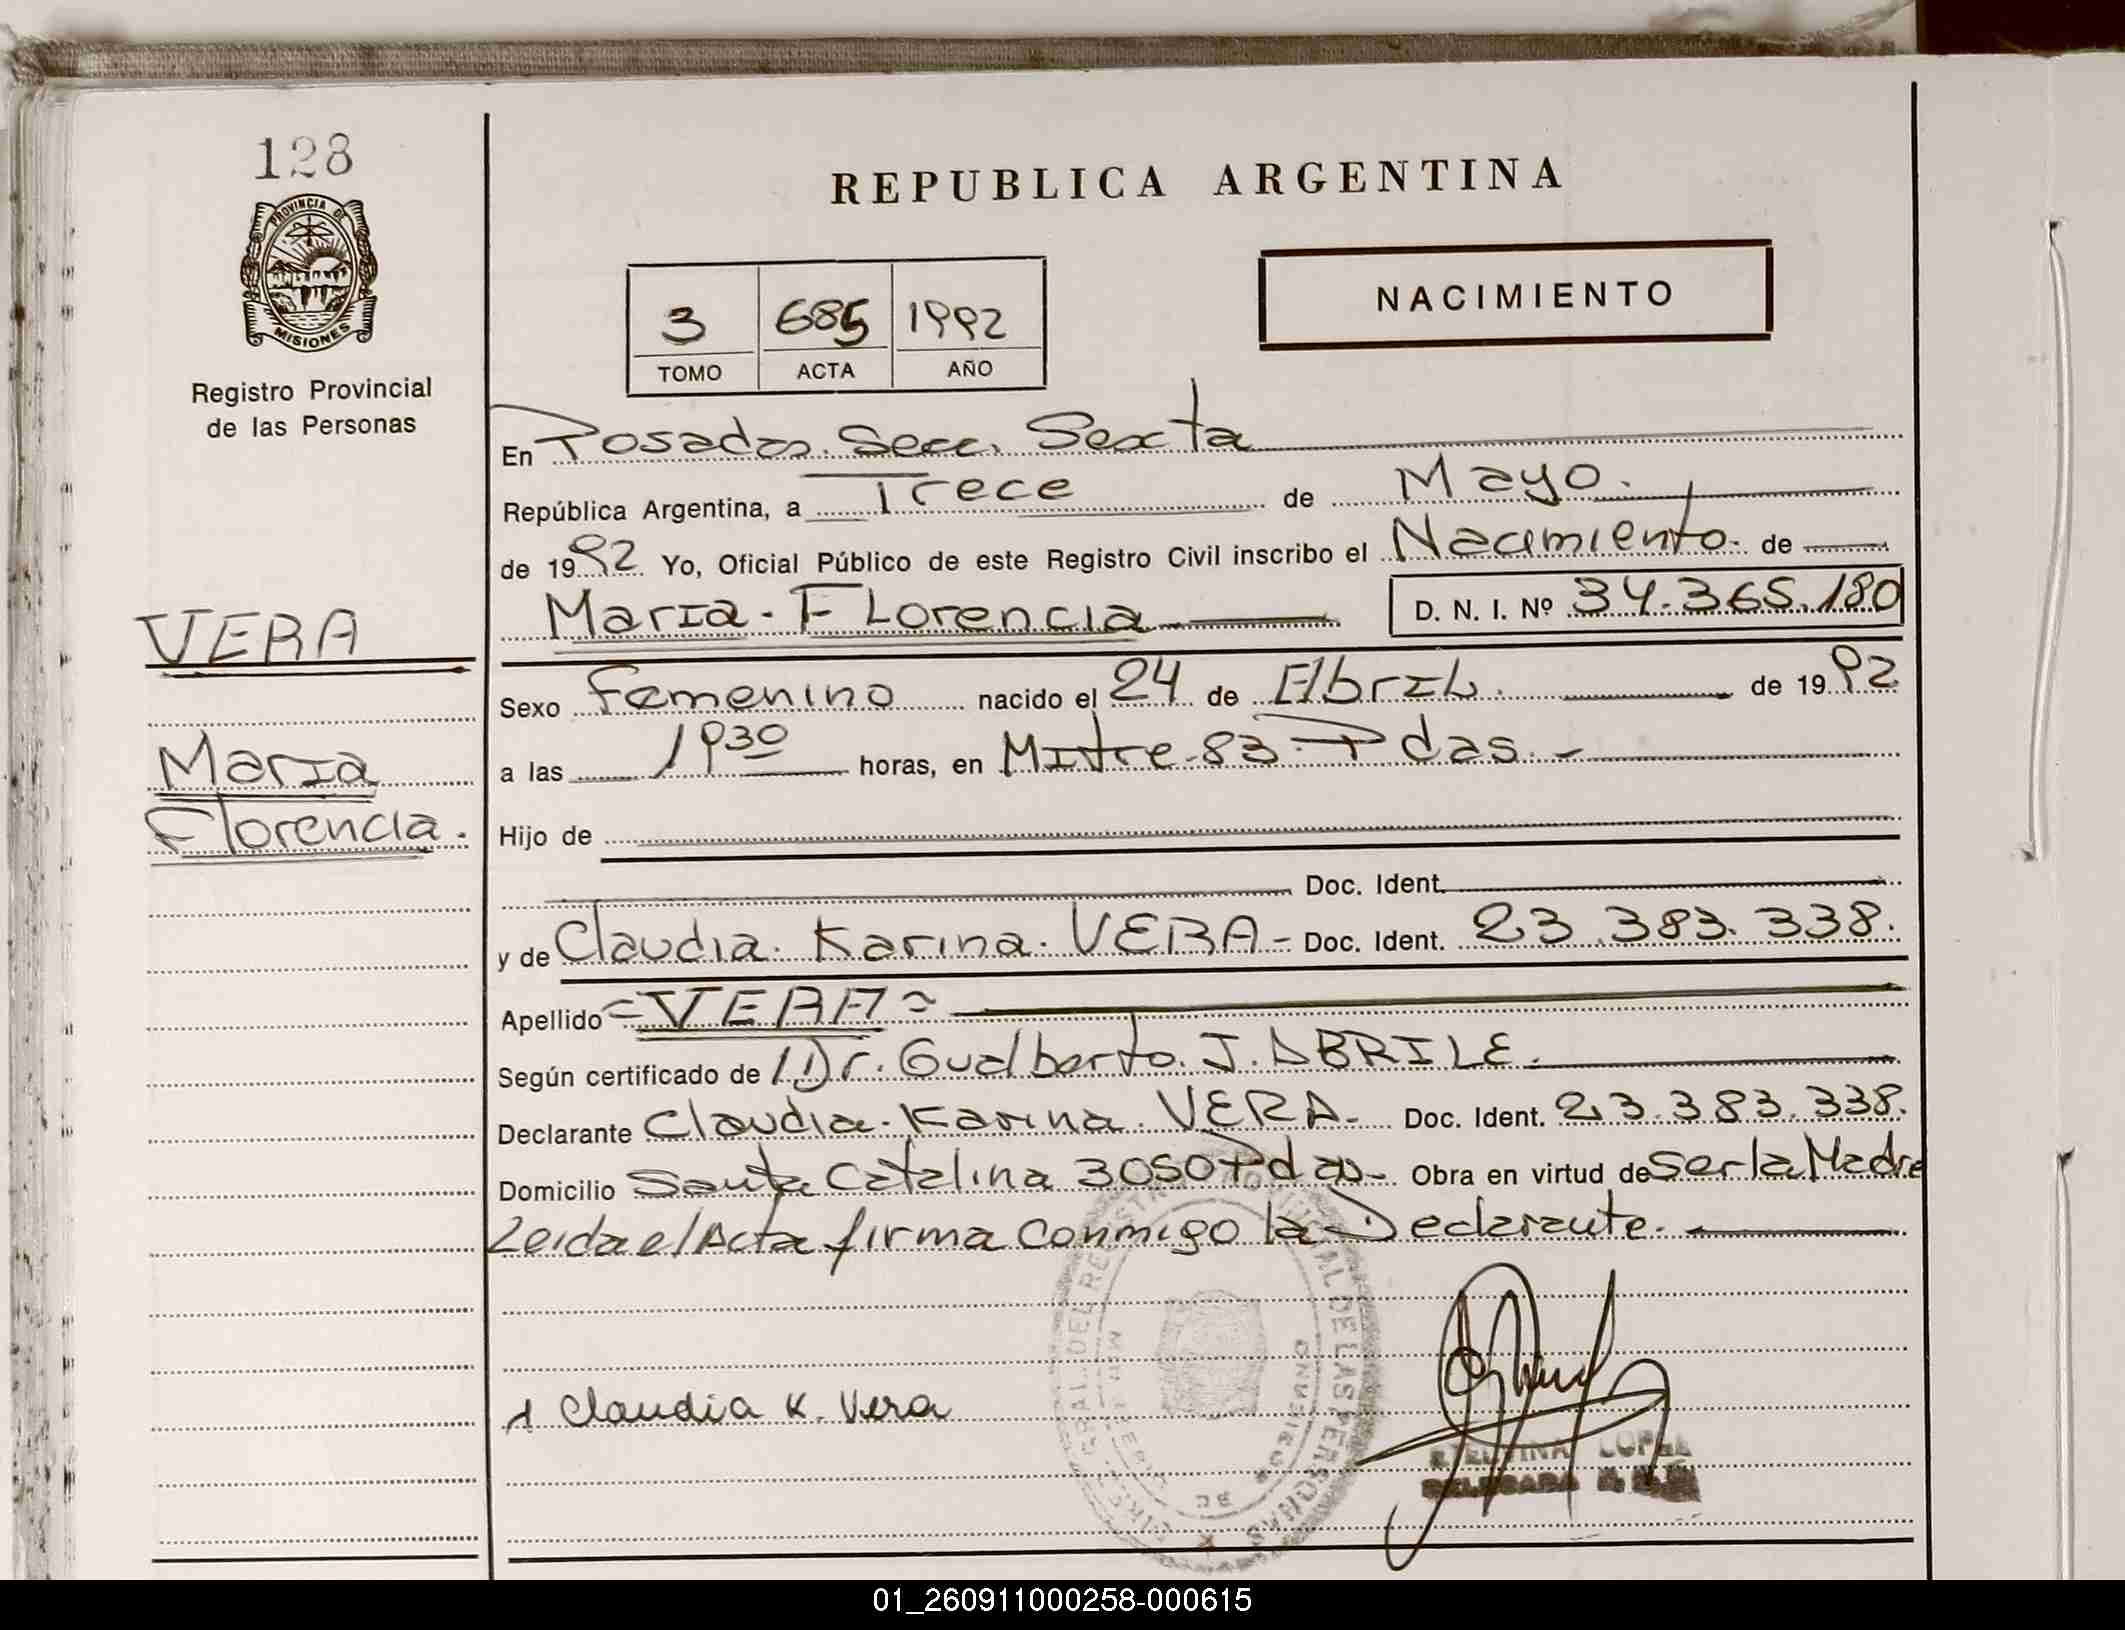 128
PROVINCIA DE
MISIONES
Registro Provincial
de las Personas
VERA
Maria
Florencia.
REPUBLICA ARGENTINA
3 685 1992
TOMO ACTA AÑO
NACIMIENTO
En Posadas. Secc. Sexta
República Argentina, a Trece de Mayo.
de 1992 Yo, Oficial Público de este Registro Civil inscribo el Nacimiento. de
Maria. Florencia D. N. I. Nº 34.365.180
Sexo femenino nacido el 24 de Abril. de 1992
a las 1930 horas, en Mitre-83. Pdas.-
Hijo de
Doc. Ident.
y de Claudia. Karina. VERA- Doc. Ident. 23.383.338.
Apellido =VERA=
Según certificado de Dr. Gualberto. J. ABRILE.
Declarante Claudia. Karina. VERA- Doc. Ident. 23.383.338.
Domicilio Santa Catalina 3050 Pdas- Obra en virtud de Ser la Madre
Leida el Acta firma conmigo la Declarante.
Claudia K. Vera
LOPEZ
DELEGADA
01_260911000258-000615